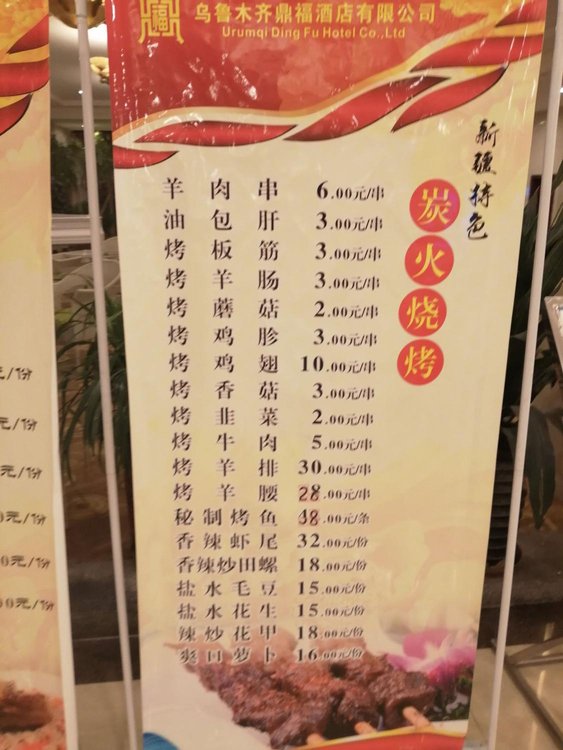 乌鲁木齐鼎福酒店有限公司
Urumqi Ding Fu Hotel Co.,Ltd
新疆特色
炭火烧烤
羊肉串 6.00元/串
油包肝 3.00元/串
烤板筋 3.00元/串
烤羊肠 3.00元/串
烤蘑菇 2.00元/串
烤鸡胗 3.00元/串
烤鸡翅 10.00元/串
烤香菇 3.00元/串
烤韭菜 2.00元/串
烤牛肉 5.00元/串
烤羊排 30.00元/串
烤羊腰 28.00元/串
秘制烤鱼 38.00元/条
香辣虾尾 32.00元/份
香辣炒田螺 18.00元/份
盐水毛豆 15.00元/份
盐水花生 15.00元/份
辣炒花甲 18.00元/份
爽口萝卜 16.00元/份
元/份
元/份
元/份
0元/份
00元/份
00元/份